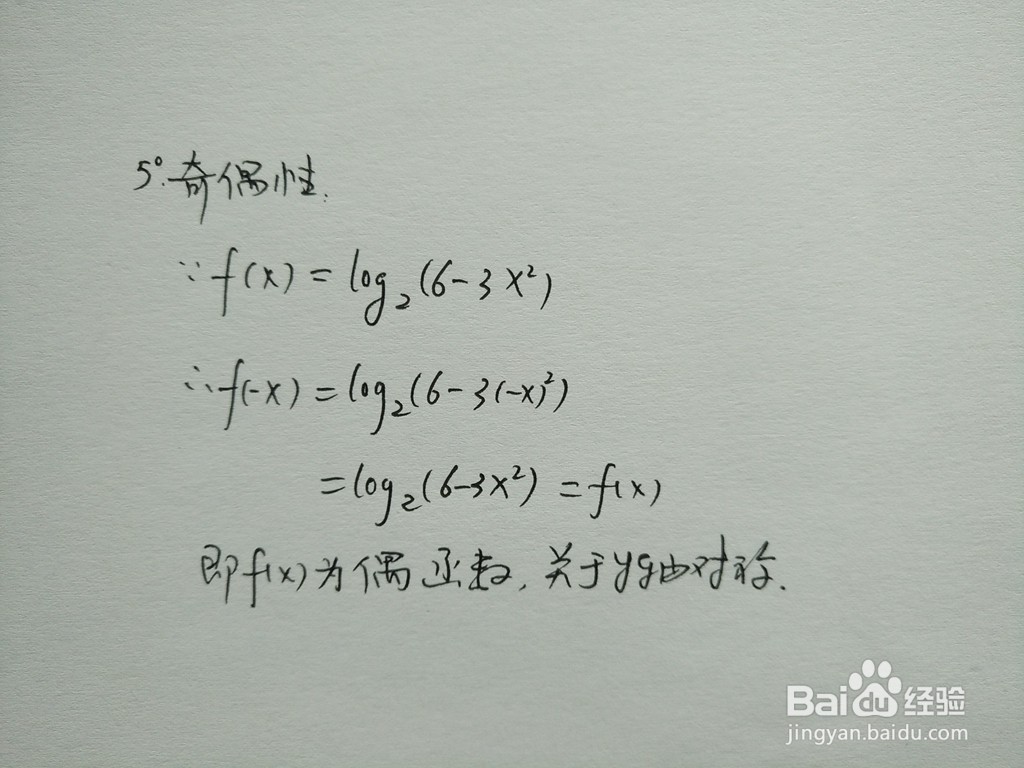 5°.奇偶性.
∵f(x)=log₂(6-3x²)
∴f(-x)=log₂(6-3(-x)²)
=log₂(6-3x²)=f(x)
即f(x)为偶函数,关于y轴对称.
Baidu经验
jingyan.baidu.com